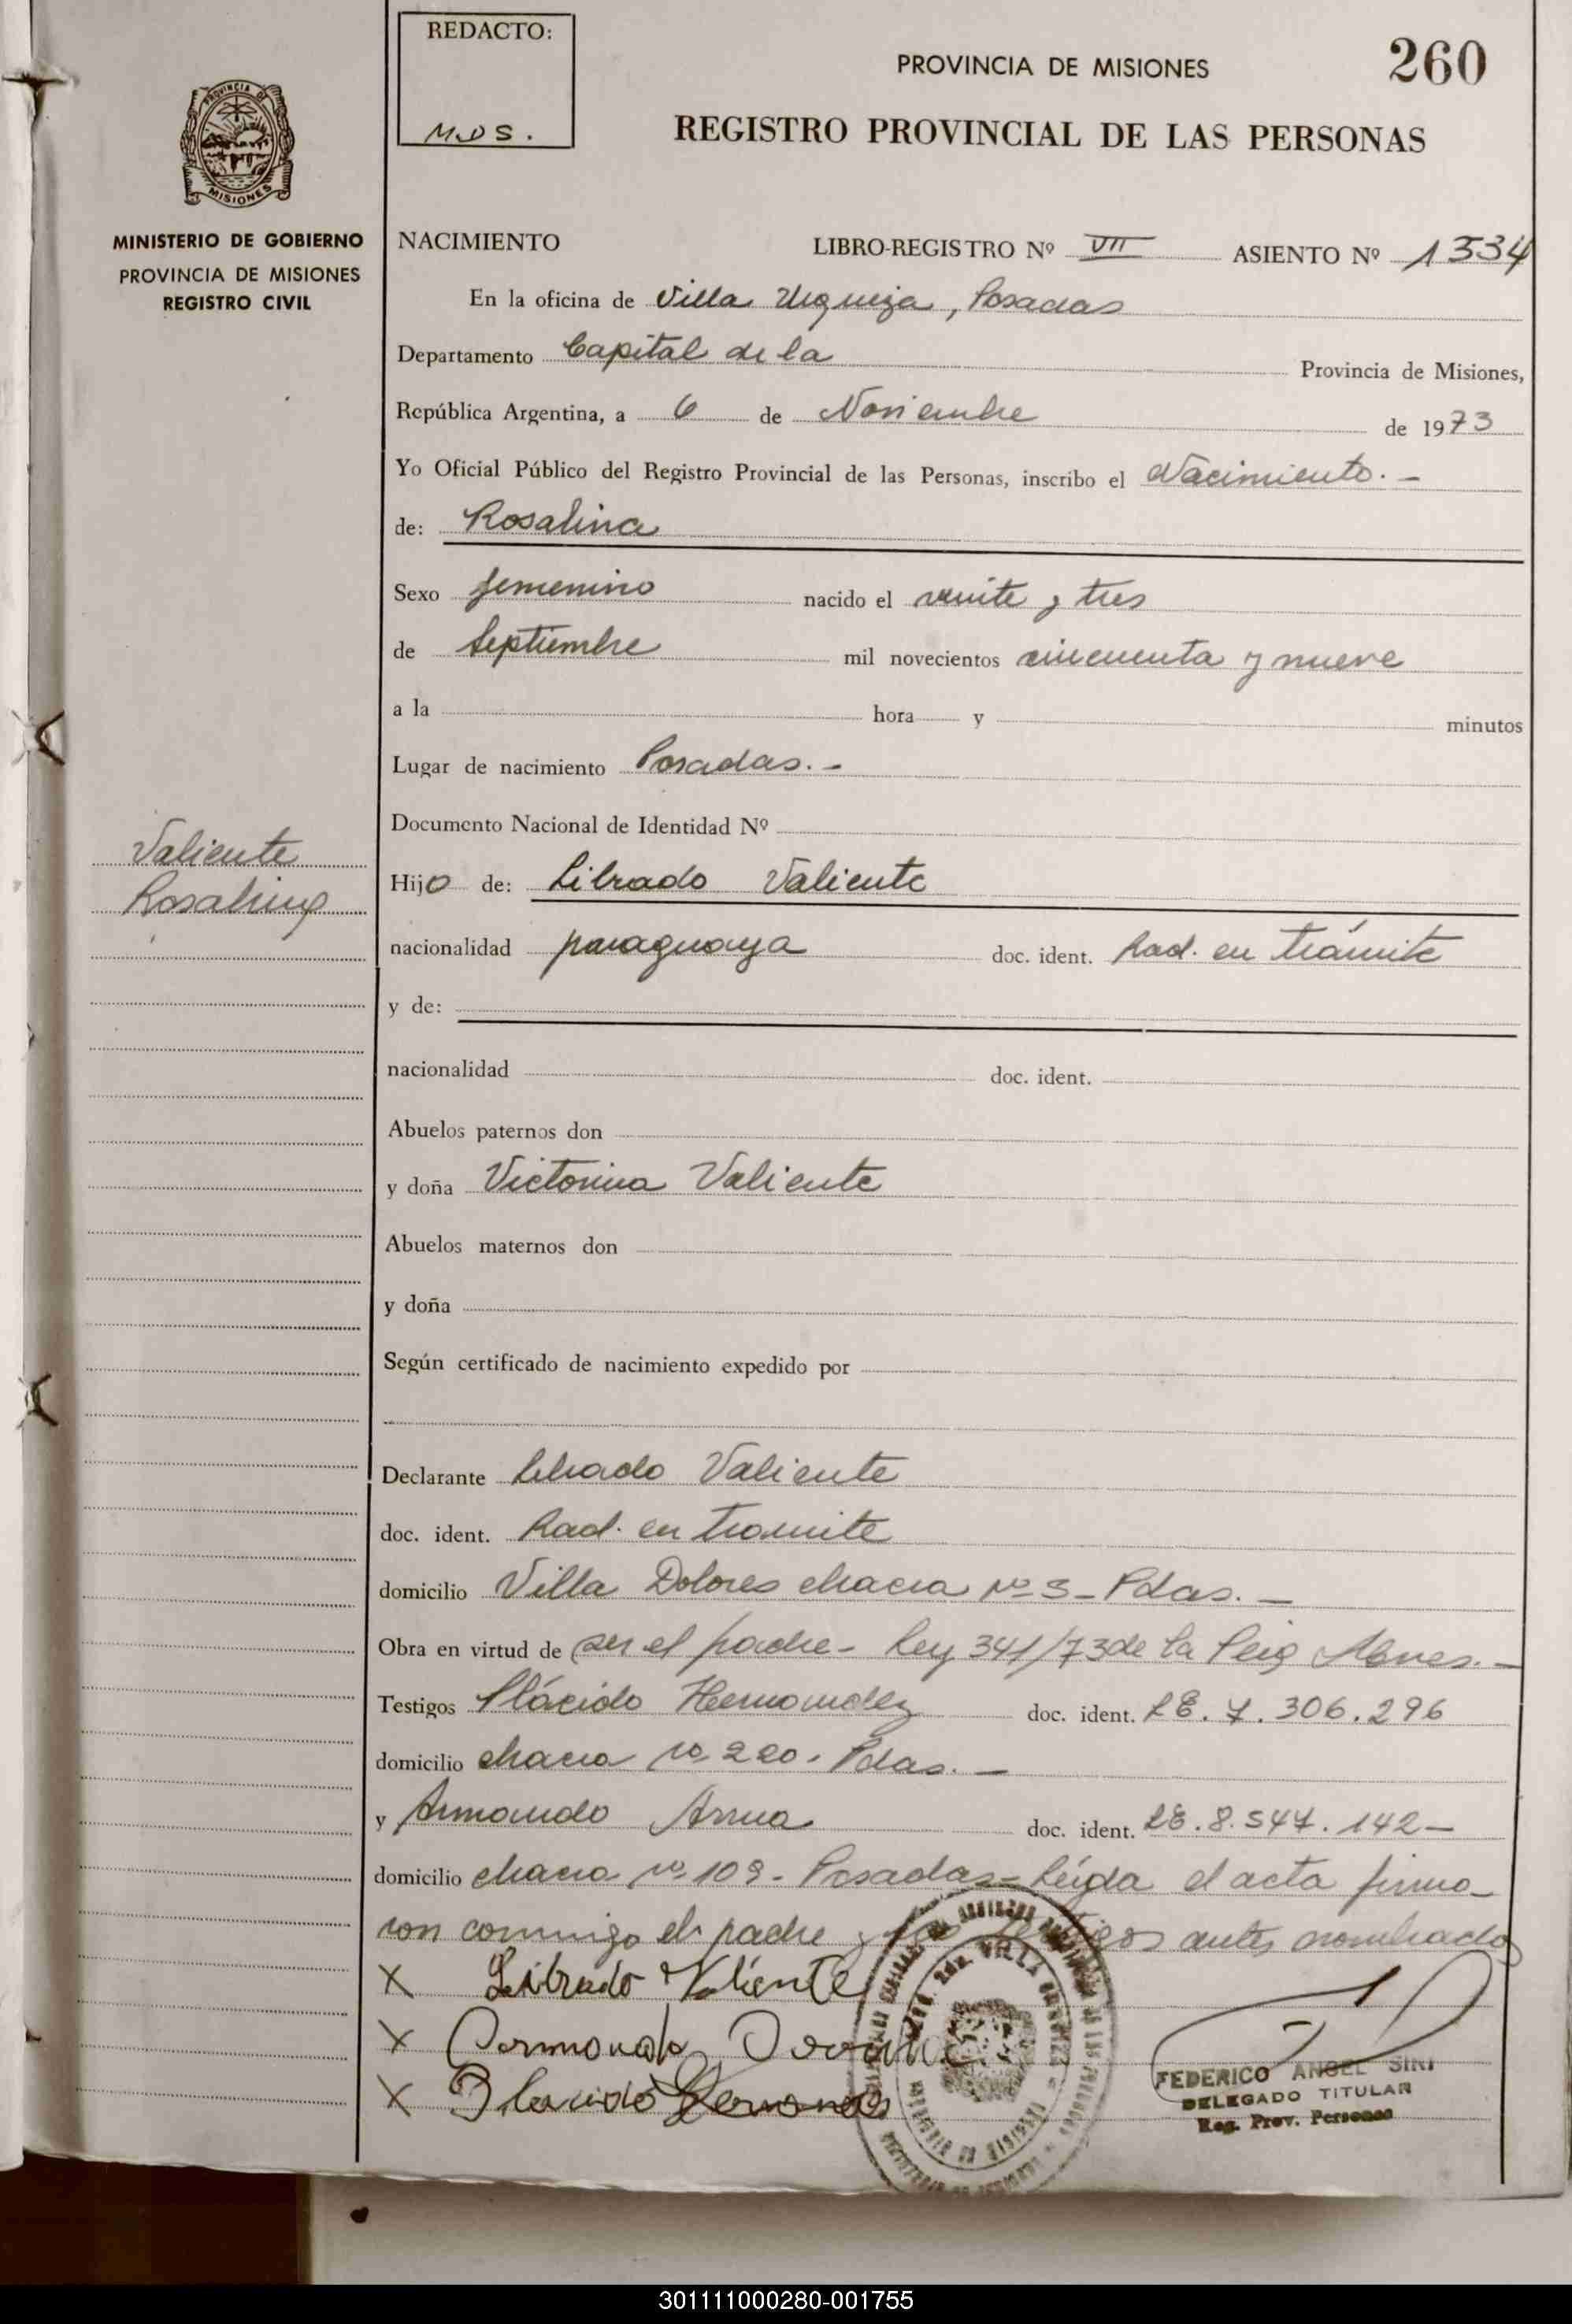 REDACTO:
M.D S.
PROVINCIA DE MISIONES
260
REGISTRO PROVINCIAL DE LAS PERSONAS
PROVINCIA DE
MISIONES
MINISTERIO DE GOBIERNO
PROVINCIA DE MISIONES
REGISTRO CIVIL
NACIMIENTO LIBRO-REGISTRO Nº VII ASIENTO Nº 1334
En la oficina de Villa Urquiza, Posadas
Departamento Capital de la Provincia de Misiones,
República Argentina, a 6 de Noviembre de 1973
Yo Oficial Público del Registro Provincial de las Personas, inscribo el Nacimiento. -
de: Rosalina
Sexo femenino nacido el veinte y tres
de Septiembre mil novecientos cincuenta y nueve
a la hora y minutos
Lugar de nacimiento Posadas. -
Documento Nacional de Identidad Nº
Valiente
Rosalina
Hijo de: Librado Valiente
nacionalidad paraguaya doc. ident. Rad. en trámite
y de:
nacionalidad doc. ident.
Abuelos paternos don
y doña Victorina Valiente
Abuelos maternos don
y doña
Según certificado de nacimiento expedido por
Declarante Librado Valiente
doc. ident. Rad. en tramite
domicilio Villa Dolores chacra nº 3 - Pdas. -
Obra en virtud de ser el padre - Ley 341/73 de la Pcia Mnes. -
Testigos Plácido Hernandez doc. ident. LE. 7. 306. 296
domicilio chacra nº 220. Pdas. -
y Armando doc. ident. LE. 8. 547. 142 -
domicilio chacra nº 109 - Posadas - Leída el acta firma-
ron conmigo el padre y los testigos antes nombrados
X Librado Valiente
X Armando
X Placido Hernandes
FEDERICO ANGEL SIRI
DELEGADO TITULAR
Reg. Prov. Personas
301111000280-001755